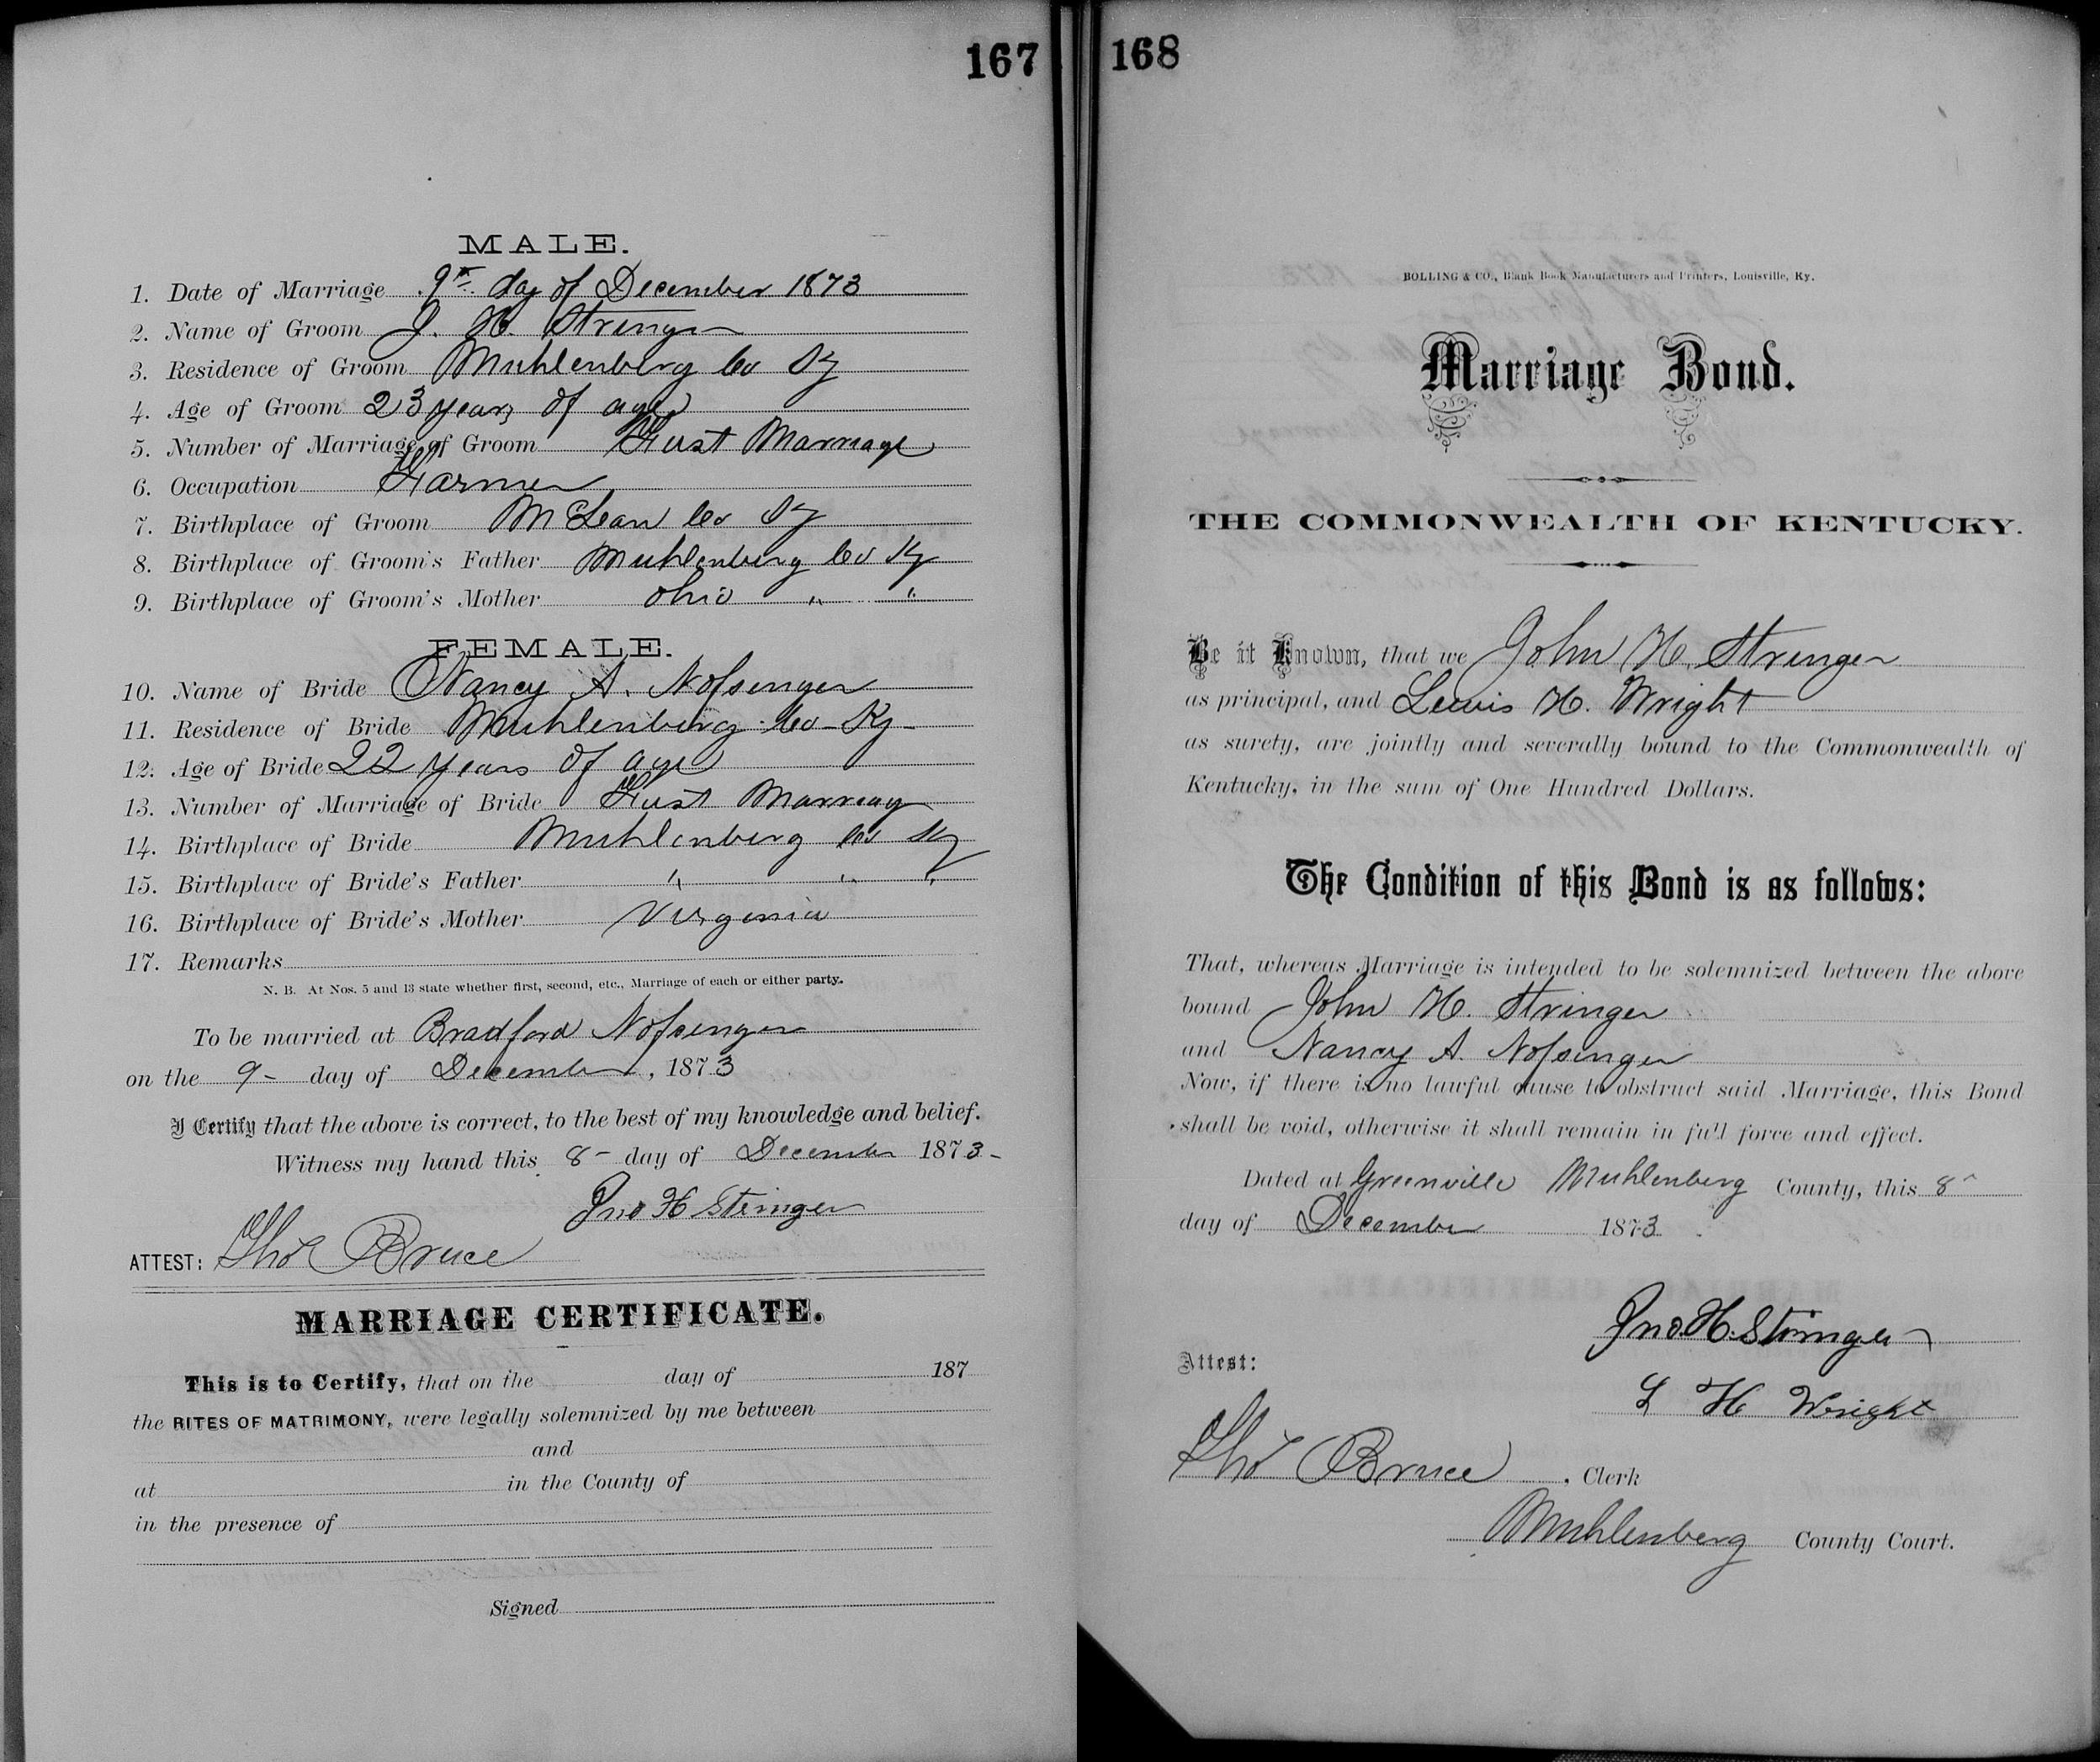 167
MALE.
1. Date of Marriage 9th day of December 1873
2. Name of Groom J. H. Stringer
3. Residence of Groom Muhlenberg Co Ky
4. Age of Groom 23 years of age
5. Number of Marriage of Groom First Marriage
6. Occupation Farmer
7. Birthplace of Groom McLean Co Ky
8. Birthplace of Groom's Father Muhlenberg Co Ky
9. Birthplace of Groom's Mother Ohio " "
FEMALE.
10. Name of Bride Nancy A. Nofsinger
11. Residence of Bride Muhlenberg Co - Ky -
12. Age of Bride 22 years of age
13. Number of Marriage of Bride First Marriage
14. Birthplace of Bride Muhlenberg Co Ky
15. Birthplace of Bride's Father " " "
16. Birthplace of Bride's Mother Virginia
17. Remarks
N. B. At Nos. 5 and 13 state whether first, second, etc., Marriage of each or either party.
To be married at Bradford Nofsinger
on the 9- day of December, 1873
I Certify that the above is correct, to the best of my knowledge and belief.
Witness my hand this 8- day of December 1873-
Jno H Stringer
ATTEST: Tho Bruce
MARRIAGE CERTIFICATE.
This is to Certify, that on the day of 187
the RITES OF MATRIMONY, were legally solemnized by me between
and
at in the County of
in the presence of
Signed
168
BOLLING & CO., Blank Book Manufacturers and Printers, Louisville, Ky.
Marriage Bond.
THE COMMONWEALTH OF KENTUCKY.
Be it Known, that we John H. Stringer
as principal, and Lewis H. Wright
as surety, are jointly and severally bound to the Commonwealth of
Kentucky, in the sum of One Hundred Dollars.
The Condition of this Bond is as follows:
That, whereas Marriage is intended to be solemnized between the above
bound John H. Stringer
and Nancy A. Nofsinger
Now, if there is no lawful cause to obstruct said Marriage, this Bond
shall be void, otherwise it shall remain in full force and effect.
Dated at Greenville Muhlenberg County, this 8-
day of December 1873
Jno. H. Stringer
Attest:
L H Wright
Tho Bruce, Clerk
Muhlenberg County Court.